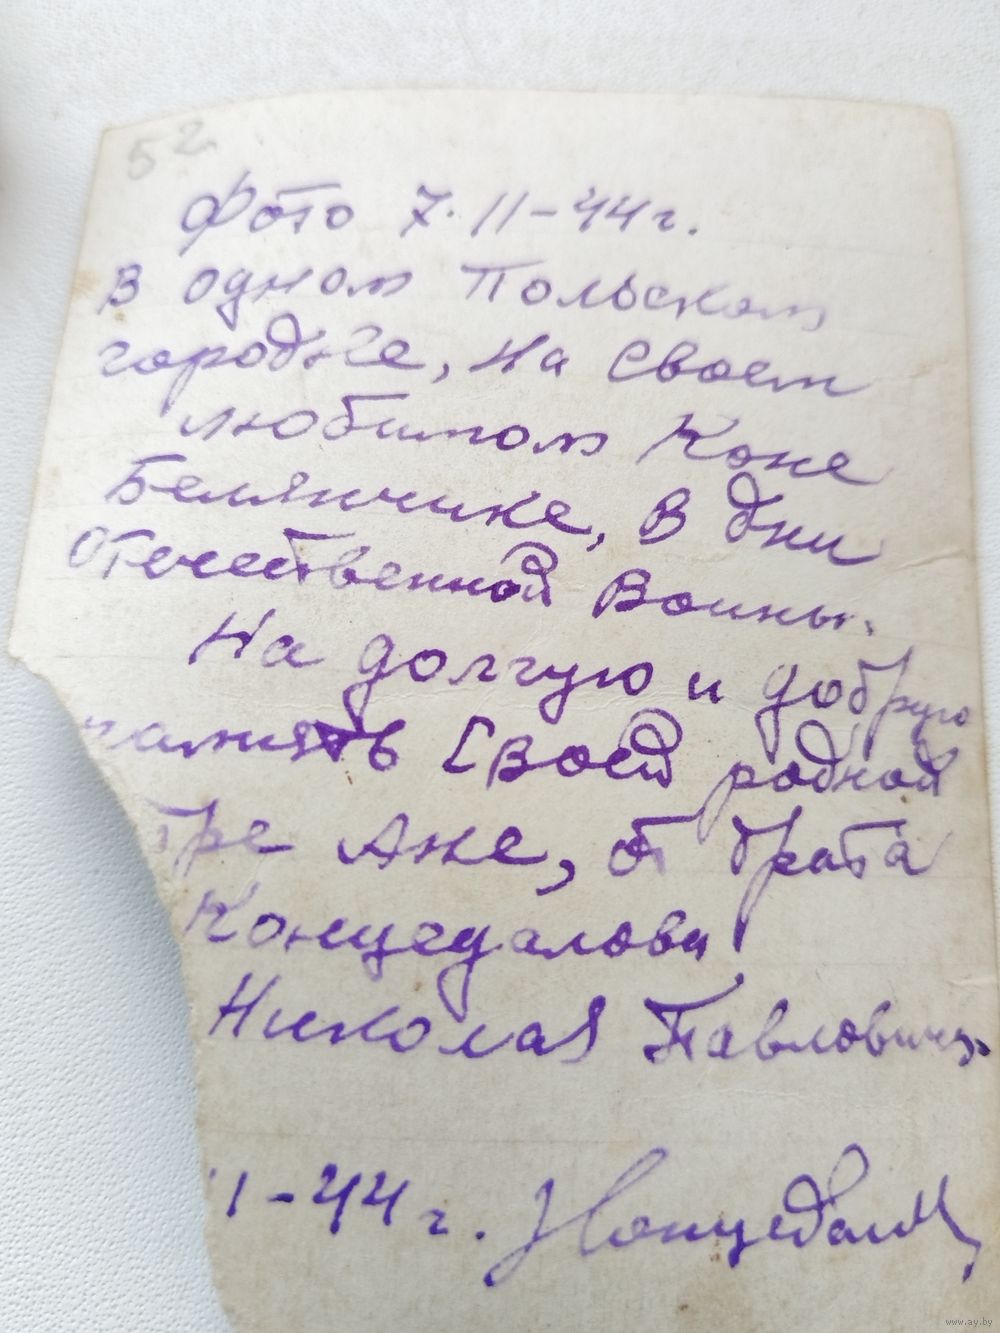 52
Фото 7.11-44г.
в одном Польском
городке, на своем
любимом коне
Белянчике, в дни
Отечественной Воины.
На долгую и добрую
память Своей родной
тре Ане, от брата
Концедалова
Николая Павловича
11-44г. Концедал
www.ay.by